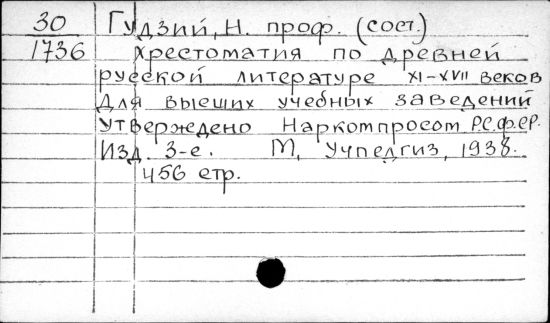 30
1736
Гудзий, Н. проф. (сост.)
Хрестоматия по древней
русской литературе XI-XVII веков
для высших учебных заведений
Утверждено Наркомпросом Р.С.Ф.СР.
Изд. 3-е. М, Учпедгиз, 1938.
456 стр.